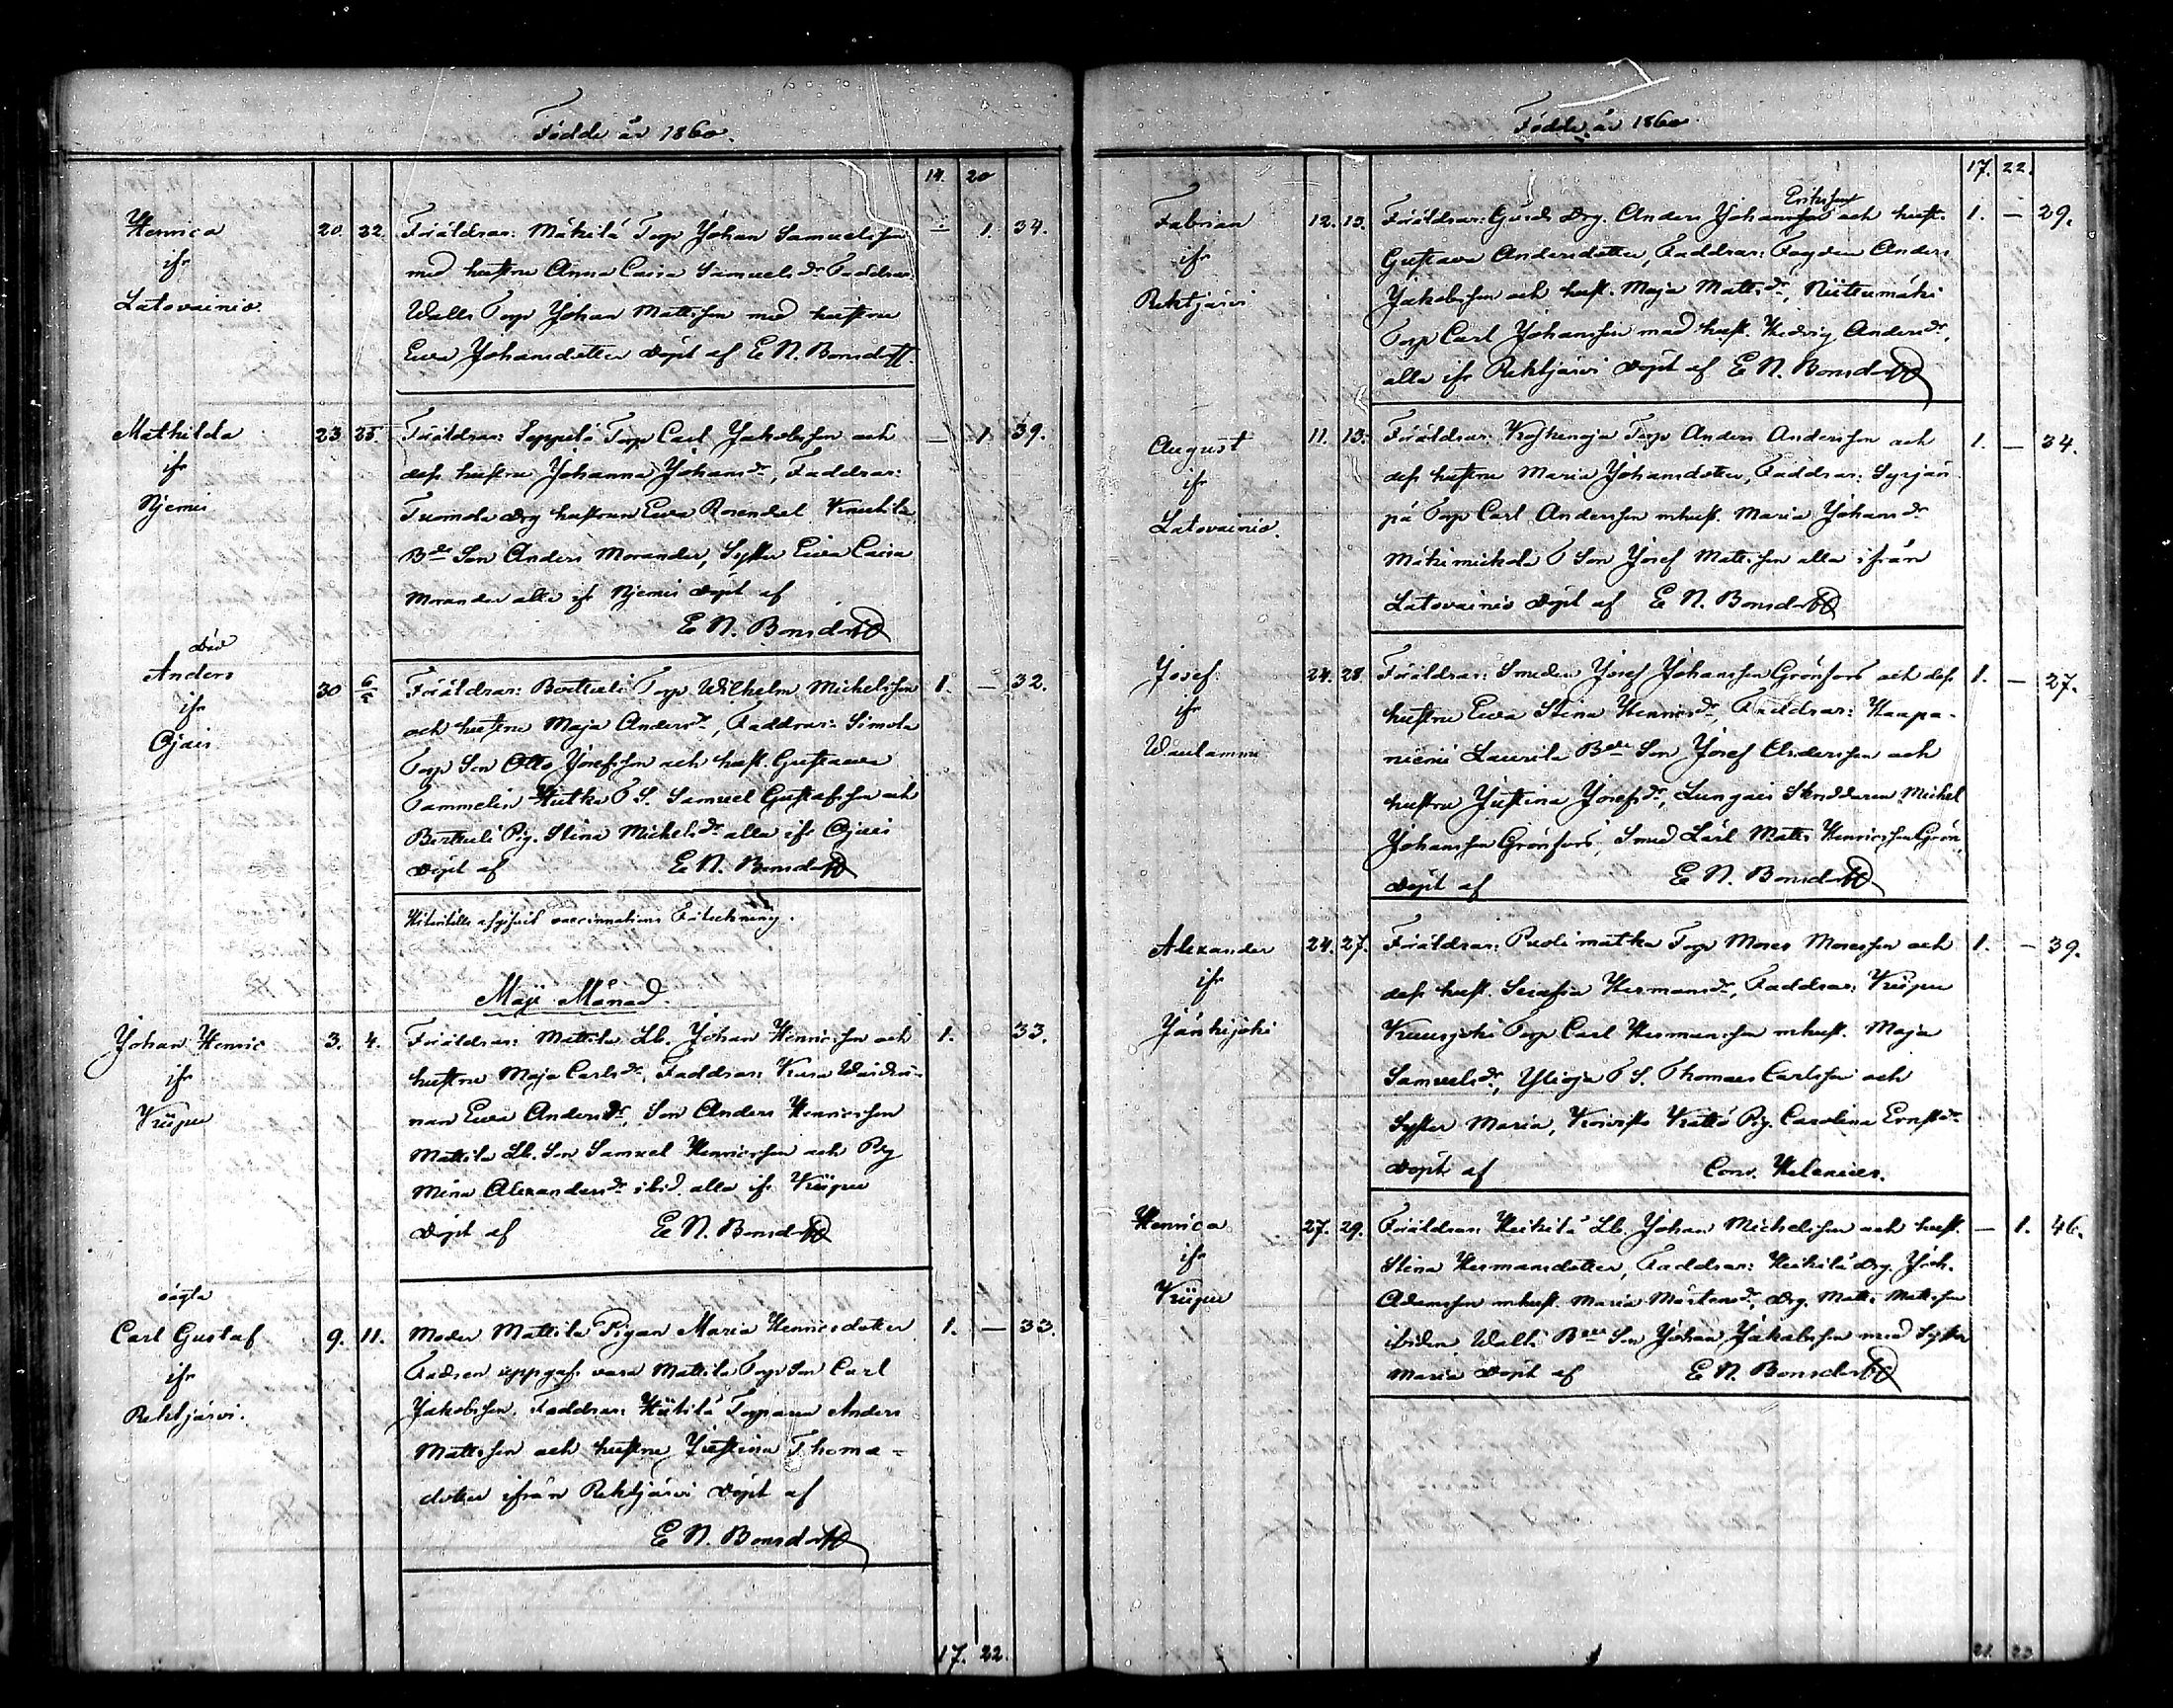 Födde år 1860.
14. 20
Henrica 20. 22. Föräldrar: Mäkilä Torp Johan Samuelsson — 1. 34.
ifr med hustru Anna Caisa Samuels dr Faddrar
Latovainio. Walli Torp Johan Mattsson med hustru
Ewa Johansdotter döpt af E N. Bonsdorff.
Mathilda 23 25 Föräldrar: Seppilä Torp Carl Jakobsson och — 1 39.
ifr dess hustru Johanna Johansdr, Faddrar:
Njemis Tuomola drg hustrun Ewa Rosendal
Bde Son Anders Morander, Syster Ewa Caisa
Morander alla ifr Njemis döpt af
E N. Bonsdorff
död
Anders 30 6/5 Föräldrar: Bertteli Torp Wilhelm Michelsson 1. — 32.
ifr och hustru Maja Andersdr, Faddrar: Simola
Ojais Torp Son Otto Josefsson och hust. Gustawa
Tammelin Hutka T S. Samuel Gustafsson och
Bertteli Pig. Stina Michelsdr alla ifr Ojais
döpt af E N. Bonsdorff
vaccinnations Förteckning.
Maji Månad.
Johan Henric 3. 4. Föräldrar: Mattila Lb. Johan Henricsson och 1. 33.
ifr hustru Maja Carlsdr, Faddrar:
Kriipu nan Ewa Andersdr, Son Anders Henricsson
Mattila Lb. Son Samuel Henricsson och Pig
Mina Alexandersdr ibid. alla ifr Kriipu
döpt af E N. Bonsdorff
oägta
Carl Gustaf 9. 11. Moder Mattila Pigan Maria Henricsdotter 1. — 33.
ifr Fadren uppgafs vara Mattila Torp Son Carl
Rehtjärvi. Jakobsson. Faddrar: Hiitilä Torparen Anders
Mattsson och hustru Justina Thoma-
dotter ifrån Rehtjärvi döpt af
E N. Bonsdorff
17. 22.
Födde år 1860
17. 22.
Eriksson
Fabian 12. 13. Föräldrar: Gårds Drg. Anders Johansson och hust. 1. — 29.
ifr Gustava Andersdotter, Faddrar: Fogden Anders
Rehtjärvi Jakobsson och hust. Maja Mattsdr, Niittumäki
Torp Carl Johansson med hust. Hedvig Andersdr,
alla ifr Rehtjärvi döpt af E N. Bonsdorff
August 11. 13. Föräldrar: Koskenoja Torp Anders Andersson och 1. — 34.
ifr dess hustru Maria Johansdotter, Faddrar: Syrjän
Latovainio. pä Torp Carl Andersson mhust. Maria Johansdr
Mäkimickola T Son Josef Mattsson alla ifrån
Latovainio döpt af E N. Bonsdorff
Josef 24. 28 Föräldrar: Smeden Josef Johansson Grönfors och dess 1. — 27.
ifr hustru Ewa Stina Henricsdr, Faddrar: Haapa-
Waulammi niemi Laurila Bde Son Josef Andersson och
hustru Justina Josefsdr, Lungais Skräddaren Michel
Johansson Grönfors, Smed Lärl. Matts Henricsson Grön,
döpt af E N. Bonsdorff
Alexander 24. 27. Föräldrar: Puolimatka Torp Moses Mosesson och 1. — 39.
ifr dess hust. Serafia Hermansdr, Faddrar: Kriipu
Jänhijoki Torp Carl Hermansson mhust. Maja
Samuelsdr, Ylioja T S. Thomas Carlsson och
Syster Maria, Koivisto Pig. Carolina Ernstdr
döpt af Helenius.
Henrica 27. 29. Föräldrar: Heikilä Lb. Johan Michelsson och hust. — 1. 46.
ifr Stina Hermansdotter, Faddrar: Heikilä drg. Joh.
Kriipu Adamsson mhust. Maria Mårtensdr, Drg. Matts Mattsson
ibidm, Walli Bde Son Johan Jakobsson med Syster
Maria döpt af E N. Bonsdorff
21. 23